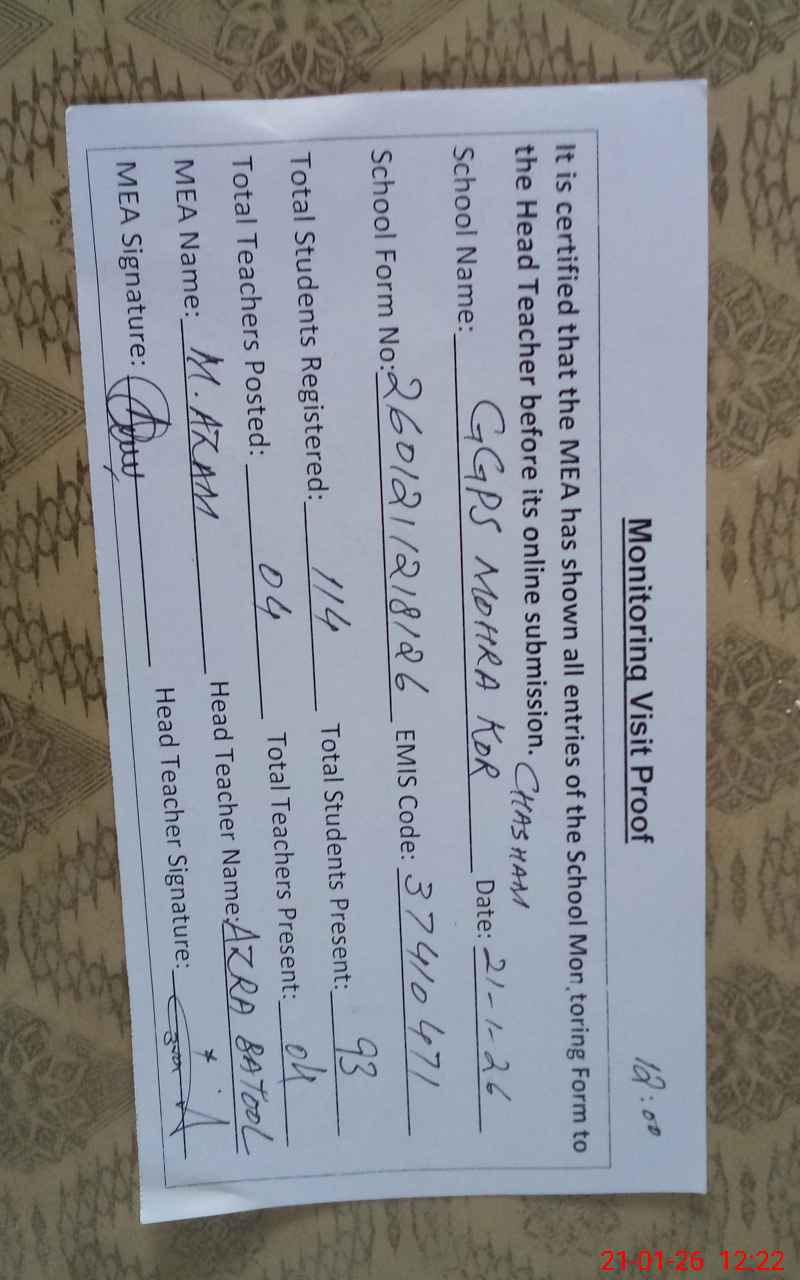 12:00
Monitoring Visit Proof
It is certified that the MEA has shown all entries of the School Monitoring Form to
the Head Teacher before its online submission.
CHASHAM
School Name: GGPS MOHRA KOR Date: 21-1-26
School Form No: 2601211218126 EMIS Code: 37410471
Total Students Registered: 114 Total Students Present: 93
Total Teachers Posted: 04 Total Teachers Present: 04
MEA Name: M. AZAM Head Teacher Name: AZRA BATOOL
MEA Signature: Head Teacher Signature:
21-01-26 12:22